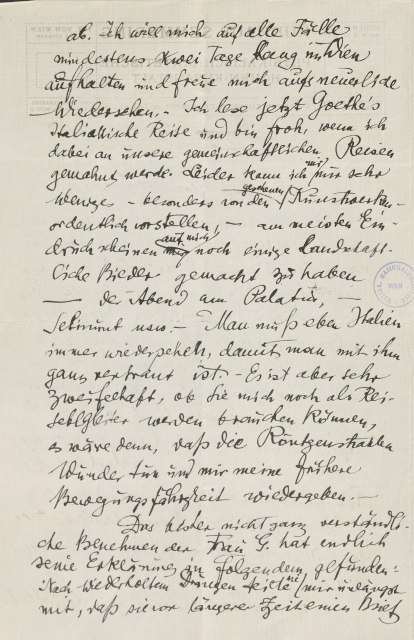 ab. Ich will mich auf alle Fälle
mindestens zwei Tage lang in Wien
aufhalten und freue mich aufs neuerliche
Wiedersehen. – Ich lese jetzt Goethe's
Italienische Reise und bin froh, wenn ich
dabei an unsere gemeinschaftlichen Reisen
gemahnt werde. Leider kann ich mir sehr
wenige – besonders von den gesehenen Kunstwerken
ordentlich vorstellen, – am meisten Ein-
druck scheinen auf mich noch einige Landschaft-
liche Bilder gemacht zu haben
— der Abend am Palatin, –
usw. – Man muß eben Italien
immer wiedersehen, damit man mit ihm
ganz vertraut ist. – Es ist aber sehr
zweifelhaft, ob Sie mich noch als Rei-
sebegleiter werden brauchen können,
es wäre denn, daß die Röntgenstrahlen
Wunder tun und mir meine frühere
Bewegungsfähigkeit wiedergeben. –
Das bisher nicht ganz verständli-
che Benehmen der Frau G. hat endlich
seine Erklärung in folgendem gefunden:
Nach wiederholtem Drängen teilte sie mir unlängst
mit, daß sie vor längerer Zeit einen Brief